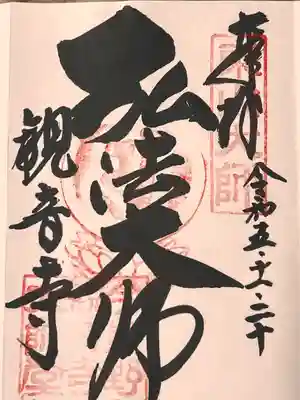 奉拝
令和五・十一・二十
弘法大師
観音寺